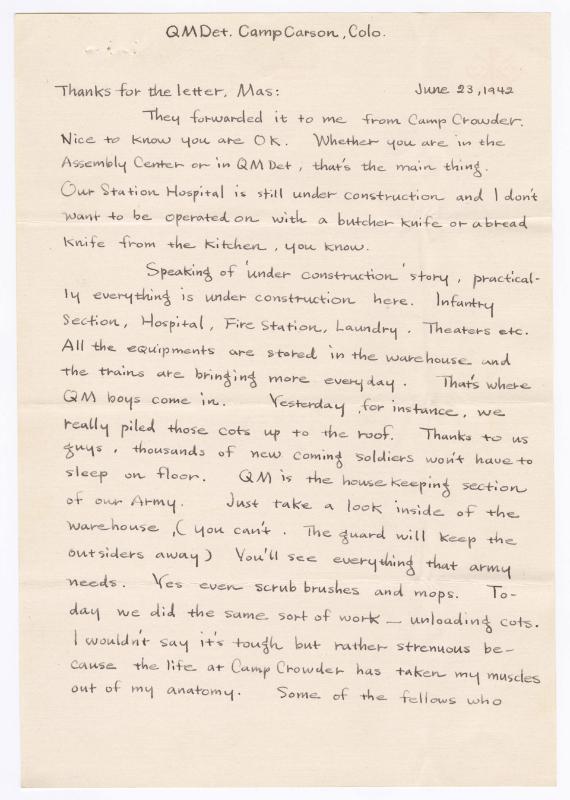 QMDet. Camp Carson, Colo.
Thanks for the letter, Mas: June 23, 1942
They forwarded it to me from Camp Crowder.
Nice to know you are OK. Whether you are in the
Assembly Center or in QMDet, that's the main thing.
Our Station Hospital is still under construction and I don't
want to be operated on with a butcher knife or a bread
knife from the kitchen, you know.
Speaking of 'under construction' story, practical-
ly everything is under construction here. Infantry
Section, Hospital, Fire Station, Laundry. Theaters etc.
All the equipments are stored in the warehouse and
the trains are bringing more everyday. That's where
QM boys come in. Yesterday, for instance, we
really piled those cots up to the roof. Thanks to us
guys, thousands of new coming soldiers won't have to
sleep on floor. QM is the housekeeping section
of our Army. Just take a look inside of the
warehouse, (you can't. The guard will keep the
outsiders away) You'll see everything that army
needs. Yes even scrub brushes and mops. To-
day we did the same sort of work — unloading cots.
I wouldn't say it's tough but rather strenuous be-
cause the life at Camp Crowder has taken my muscles
out of my anatomy. Some of the fellows who